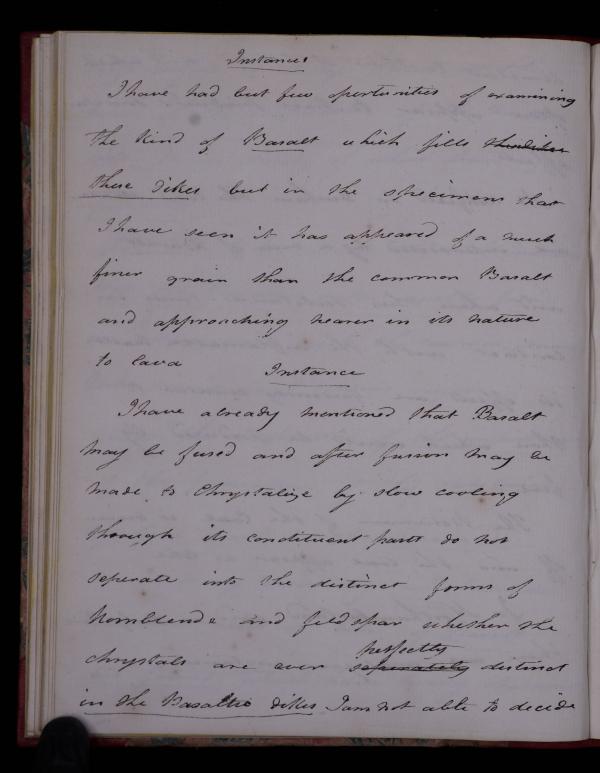 Instances
I have had but few oportunities of examining
the Kind of Basalt which fills
these dikes but in the specimens that
I have seen it has appeared of a much
finer grain than the common Basalt
and approaching nearer in its nature
to lava
Instance
I have already mentioned that Basalt
may be fused and after fusion may be
made to Chrystalize by slow cooling
through its constituent parts do not
seperate into the distinct forms of
Hornblende and feldspar whether the
perfectly
chrystals are ever seperately distinct
in the Basaltic dikes I am not able to decide